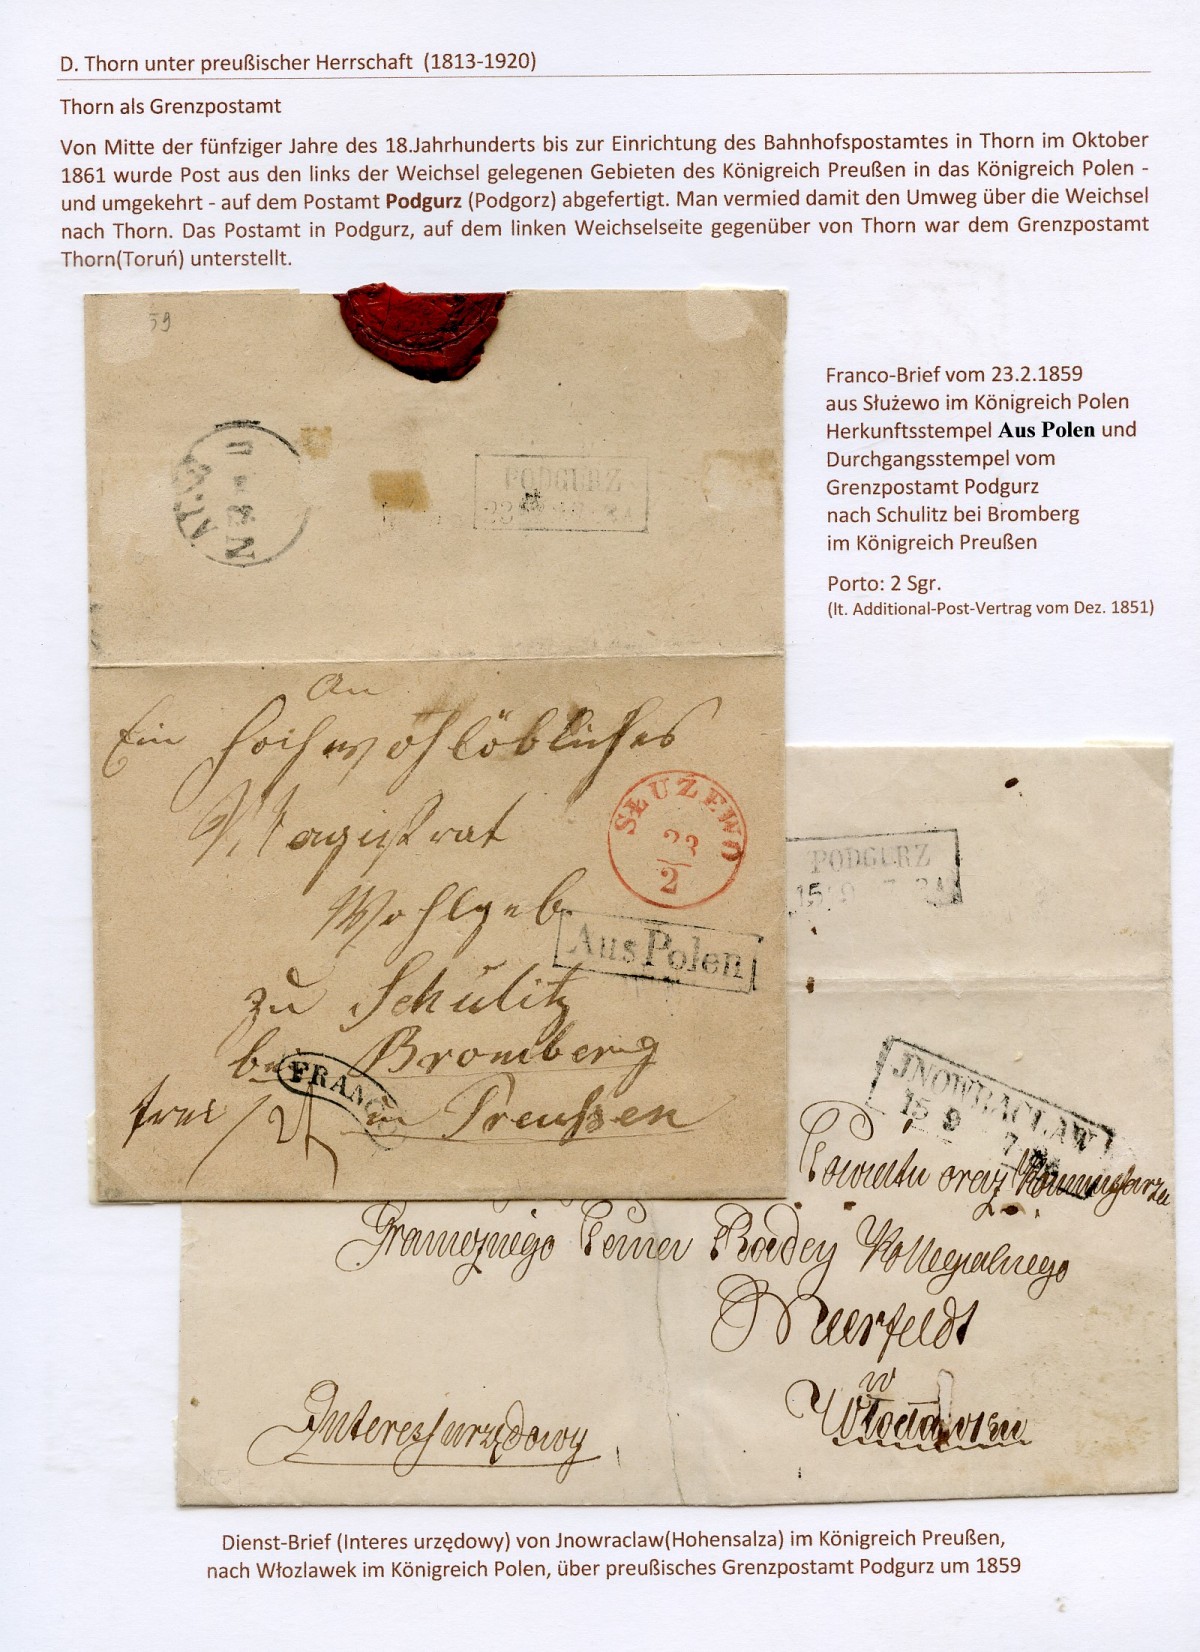 D. Thorn unter preußischer Herrschaft (1813-1920)
Thorn als Grenzpostamt
Von Mitte der fünfziger Jahre des 18.Jahrhunderts bis zur Einrichtung des Bahnhofspostamtes in Thorn im Oktober
1861 wurde Post aus den links der Weichsel gelegenen Gebieten des Königreich Preußen in das Königreich Polen -
und umgekehrt - auf dem Postamt Podgurz (Podgorz) abgefertigt. Man vermied damit den Umweg über die Weichsel
nach Thorn. Das Postamt in Podgurz, auf dem linken Weichselseite gegenüber von Thorn war dem Grenzpostamt
Thorn(Toruń) unterstellt.
59
Franco-Brief vom 23.2.1859
aus Służewo im Königreich Polen
Herkunftsstempel Aus Polen und
Durchgangsstempel vom
Grenzpostamt Podgurz
nach Schulitz bei Bromberg
im Königreich Preußen
Porto: 2 Sgr.
(lt. Additional-Post-Vertrag vom Dez. 1851)
PODGURZ
An
Ein hochwohlöbliches
Magistrat
Wohlgeb
zu Schulitz
bei Bromberg
in Preussen
SŁUŻEWO
23
2
Aus Polen
FRANCO
PODGURZ
15 9
JNOWRACLAW
15 9 7
Powiatu oraz
Granicznego Radcy Kollegialnego
w
Interes urzędowy
Dienst-Brief (Interes urzędowy) von Jnowraclaw(Hohensalza) im Königreich Preußen,
nach Włozlawek im Königreich Polen, über preußisches Grenzpostamt Podgurz um 1859